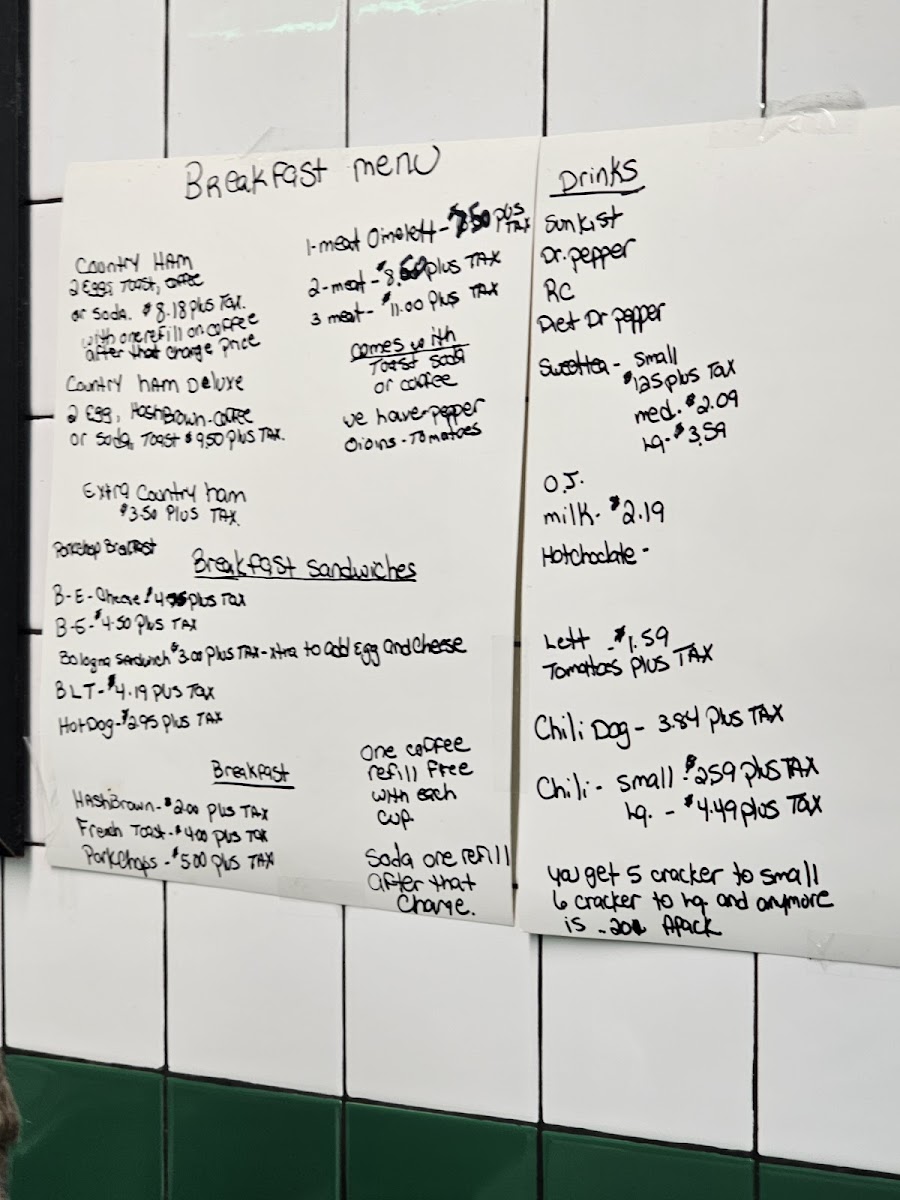 Breakfast menu
Country HAM
2 Eggs, Toast, coffee
or soda. $8.18 plus Tax.
with one refill on coffee
after that charge price
Country ham Deluxe
2 Egg, HashBrown-coffee
or soda, Toast $9.50 plus TAX.
Extra Country ham
$3.50 Plus TAX.
1-meat Omelett - $7.50 plus
TAX
2-meat - $8.60 plus TAX
3 meat - $11.00 plus TAX
comes with
Toast soda
or coffee
we have-pepper
Oions-Tomatoes
Porkchop Breakfast
Breakfast Sandwiches
B-E-Cheese $4 plus Tax
B-E-$4.50 Plus TAX
Bologna Sandwich $3.00 Plus TAX-xtra to add Egg and Cheese
BLT-$4.19 plus Tax
HotDog-$2.95 plus TAX
Breakfast
HashBrown-$2.00 plus TAX
French Toast-$4.00 plus Tax
PorkChops-$5.00 plus TAX
One coffee
refill free
with each
cup.
Soda one refill
after that
Charge.
Drinks
Sunkist
Dr. pepper
RC
Diet Dr pepper
Sweettea - small
$1.25 plus TAX
med. $2.09
Lg-$3.59
O.J.
milk-$2.19
Hotchoclate -
Lett - $1.59
Tomatoes plus TAX
Chili Dog - 3.84 plus TAX
Chili - Small $2.59 plus TAX
Lg. - $4.49 plus Tax
you get 5 cracker to small
6 cracker to Lg and anymore
is .20¢ Apack